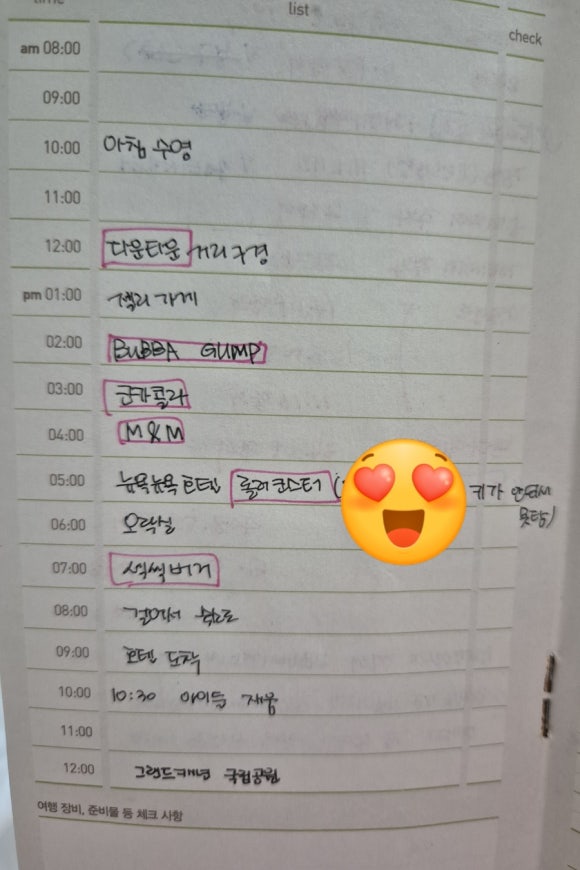 time list check
am 08:00
09:00
10:00 아침 수영
11:00
12:00 다운타운 거리 구경
pm 01:00 젤리 가게
02:00 BUBBA GUMP
03:00 코카콜라
04:00 M&M
05:00 뉴욕뉴욕 호텔 롤러코스터 ( 키가 안되서
못탐)
06:00 오락실
07:00 쉑쉑버거
08:00 걸어서 숙소로
09:00 호텔 도착
10:00 10:30 아이들 재움
11:00
12:00 그랜드캐년 국립공원
여행 장비, 준비물 등 체크 사항